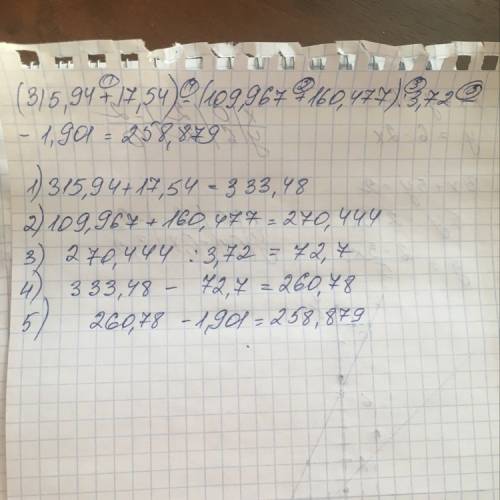 (315,94+17,54)-(109,967+160,477):3,72-
-1,901=258,879
1) 315,94+17,54=333,48
2) 109,967+160,477=270,444
3) 270,444 : 3,72 = 72,7
4) 333,48 - 72,7 = 260,78
5) 260,78 - 1,901 = 258,879